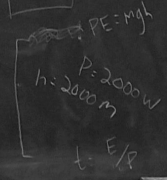 PE=mgh
P=2000W
h=2000m
t= E/P